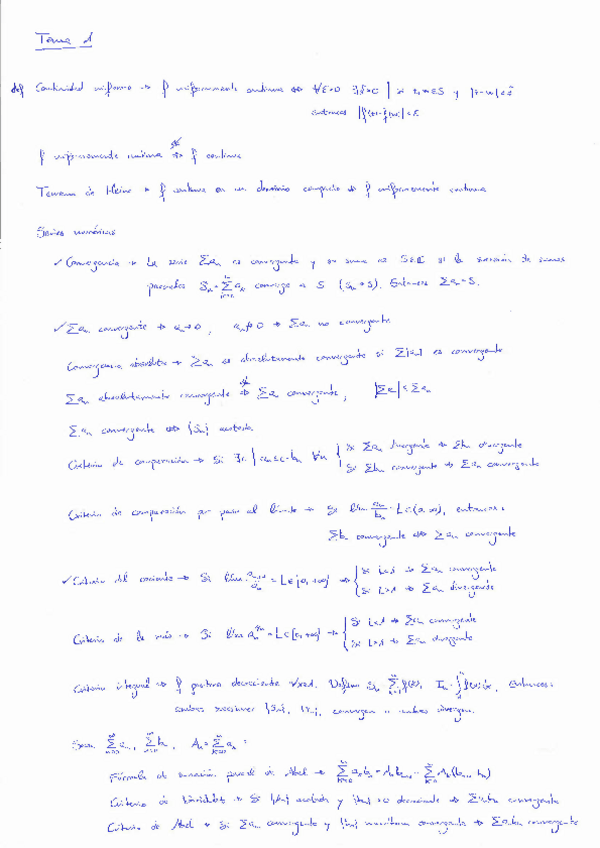 Tema 1
def Continuidad uniforme → f uniformemente continua ⇔ ∀ε>0 ∃δ>0 | si z,w∈S y |z-w|<δ
entonces |f(z)-f(w)|<ε
f uniformemente continua ⇒ f continua
Teorema de Heine → f continua en un dominio compacto ⇒ f uniformemente continua
Series numéricas
✓ Convergencia → La serie Σaₙ es convergente y su suma es S∈ℂ si la sucesión de sumas
parciales Sₙ = Σaₖ converge a S (Sₙ→S). Entonces Σaₙ=S.
✓ Σaₙ convergente ⇒ aₙ→0, aₙ↛0 ⇒ Σaₙ no convergente
Convergencia absoluta → Σaₙ es absolutamente convergente si Σ|aₙ| es convergente
Σaₙ absolutamente convergente ⇒ Σaₙ convergente,
Σaₙ convergente ⇔ {Sₙ} acotada.
Criterio de comparación → Si ∃c | aₙ≤c·bₙ ∀n { Si Σaₙ divergente ⇒ Σbₙ divergente
Si Σbₙ convergente ⇒ Σaₙ convergente
Criterio de comparación por paso al límite → Si lim aₙ/bₙ = L∈(0,∞), entonces:
Σbₙ convergente ⇔ Σaₙ convergente
✓ Criterio del cociente → Si lim aₙ₊₁/aₙ = L∈[0,+∞] ⇒ { Si L<1 ⇒ Σaₙ convergente
Si L>1 ⇒ Σaₙ divergente
Criterio de la raíz → Si lim aₙ^(1/n) = L∈[0,+∞] ⇒ { Si L<1 ⇒ Σaₙ convergente
Si L>1 ⇒ Σaₙ divergente
Criterio integral → f positiva decreciente Definimos Sₙ Σf(k), Iₙ=∫f(x)dx, Entonces:
ambas sucesiones {Sₙ}, {Iₙ}, convergen o ambas divergen.
Sean Σaₙ, Σbₙ, Aₙ=Σaₖ :
Fórmula de sumación parcial de Abel → Σaₖbₖ = Aₙbₙ₊₁ - ΣAₖ(bₖ₊₁-bₖ)
Criterio de Dirichlet → Si {Aₙ} acotada y {bₙ}→0 decreciente ⇒ Σaₙbₙ convergente
Criterio de Abel → Si Σaₙ convergente y {bₙ} monótona convergente ⇒ Σaₙbₙ convergente